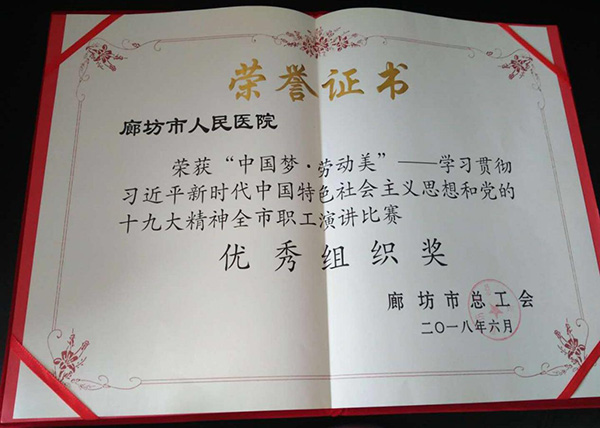 荣誉证书
廊坊市人民医院
荣获“中国梦·劳动美”——学习贯彻
习近平新时代中国特色社会主义思想和党的
十九大精神全市职工演讲比赛
优秀组织奖
廊坊市总工会
二〇一八年六月